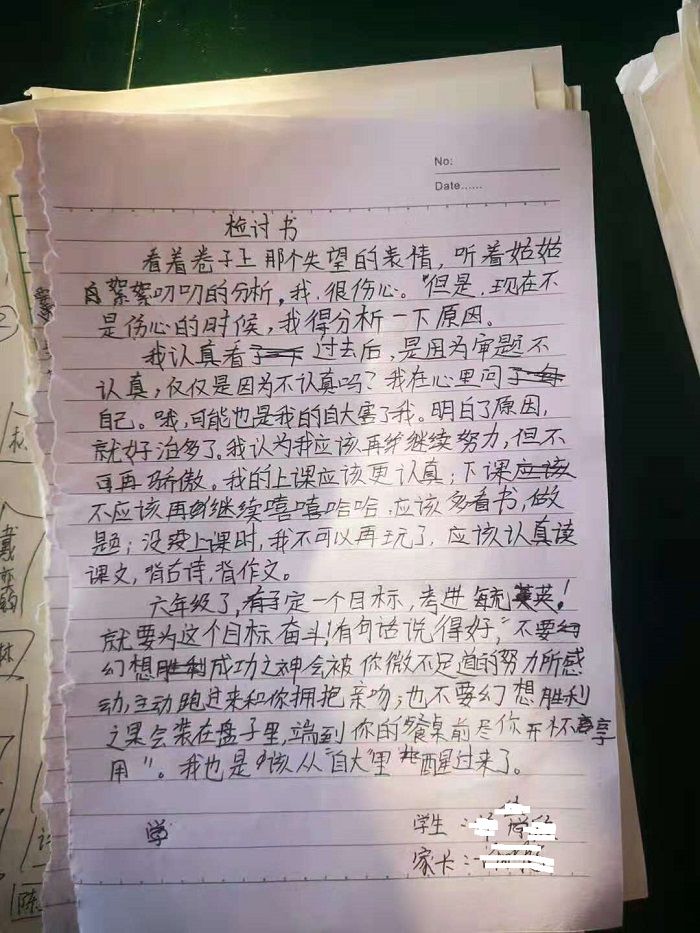 No:
Date......
检讨书
看着卷子上那个失望的表情，听着姑姑
絮絮叨叨的分析，我很伤心。"但是，现在不
是伤心的时候，我得分析一下原因。
我认真看过去后，是因为审题不
认真，仅仅是因为不认真吗？我在心里问
自己。哦，可能也是我的自大害了我。明白了原因，
就好治多了。我认为我应该再继续努力，但不
可再骄傲。我的上课应该更认真；下课
不应该再继续嘻嘻哈哈，应该多看书，做
题；没要上课时，我不可以再玩了，应该认真读
课文，背古诗，背作文。
六年级了，定一个目标，考进英！
就要为这个目标奋斗！有句话说得好，"不要
幻想成功之神会被你微不足道的努力所感
动，主动跑过来和你拥抱亲吻；也不要幻想胜利
之果会装在盘子里，端到你的餐桌前尽你开杯享
用"。我也是该从"自大"里醒过来了。
学
学生：
家长：
陈